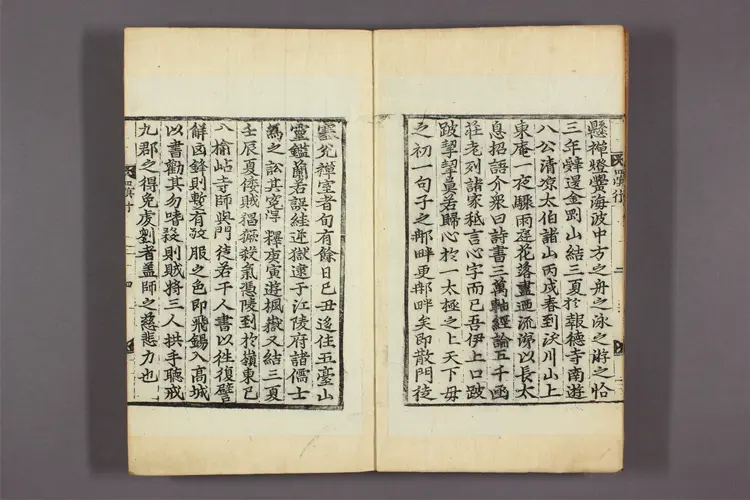 懸禪燈黌海波中方之舟之泳之游之恰
三年辭還金剛山結三夏於報德寺南遊
八公清凉太伯諸山丙戌春到沃川山上
東庵一夜驟雨庭花落盡迺流涕以長太
息招語介衆曰詩書三萬軸經論五千函
莊老列諸家秪言心字而已吾伊上口跛
跛挈挈曷若歸心於一太極之上天下毋
之初一句子之那畔更那畔矣即散門徒
塞兊禪室者旬有餘日己丑迻住五臺山
靈鑑蘭若誤絓逆獄逮于江陵府諸儒士
爲之訟其寃淂釋庚寅遊楓嶽又結三夏
壬辰夏倭賊猖獗殺氣憑陵到於嶺東已
入榆岾寺師與門徒若干人書以往復譬
解囙鋒則暫有敬服之色即飛錫入高城
以書勸其勿嗜殺則賊將三人拱手聽戒
九郡之得免虔劉者蓋師之慈悲力也